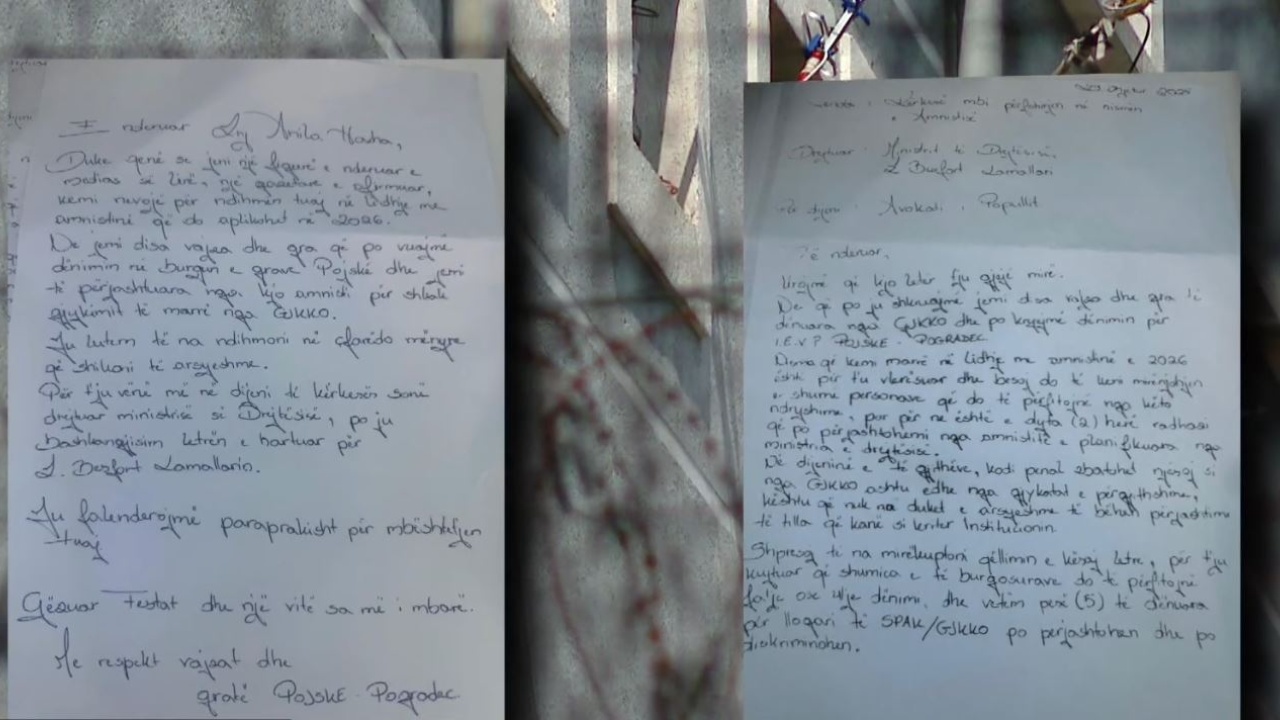 I nderuar Znj Anila Hoxha,
Duke qenë se jeni një figurë e nderuar e
medias së lirë, një gazetare e afirmuar,
kemi nevojë për ndihmën tuaj në lidhje me
amnistinë që do aplikohet në 2026.
Ne jemi disa vajza dhe gra që po vuajmë
dënimin në burgun e grave Pojskë dhe jemi
të përjashtuara nga kjo amnisti për shkak
gjykimit të marrë nga GJKKO.
Ju lutem të na ndihmoni në çfarëdo mënyre
që shikoni të arsyeshme.
Për t'ju vënë më në dijeni të kërkesës sonë
drejtuar ministrisë së Drejtësisë, po ju
bashkangjisim letrën e hartuar për
Z. Besfort Lamallario.
Ju falenderojmë paraprakisht për mbështetjen
tuaj
Gëzuar Festat dhe një vitë sa më i mbarë.
Me respekt vajzat dhe
gratë POJSKE Pogradec.
2025
Kërkesë mbi përfshirjen në nismën
e Amnistisë
Drejtuar Ministrit të Drejtësisë
Z Besfort Lamallari
Avokati i Popullit
Të nderuar,
Urojmë që kjo letër t'ju gjejë mirë.
Ne që po ju shkruajmë jemi disa vajza dhe gra të
dënuara nga GJKKO dhe po kryejmë dënimin për
I.E.V.P POJSKE - POGRADEC
Nisma që keni marrë në lidhje me amnistinë e 2026
është për t'u vlerësuar dhe besoj do të keni mirënjohjen
e shumë personave që do të përfitojnë nga këto
ndryshime, por për ne është e dyta (2) herë radhazi
që po përjashtohemi nga amnistitë e planifikuara nga
ministria e drejtësisë.
Në dijeninë e të gjithëve, kodi penal zbatohet njësoj si
nga GJKKO ashtu edhe nga gjykatat e përgjithshme,
kështu që nuk na duket e arsyeshme të bëhen përjashtime
të tilla që kanë si kriter Institucionin.
Shpresoj të na mirëkuptoni qëllimin e kësaj letre, për t'ju
kujtuar që shumica e të burgosurave do të përfitojnë
falje ose ulje dënimi, dhe vetëm pesë (5) të dënuara
për llogari të SPAK/GJKKO po përjashtohen dhe po
diskriminohen.